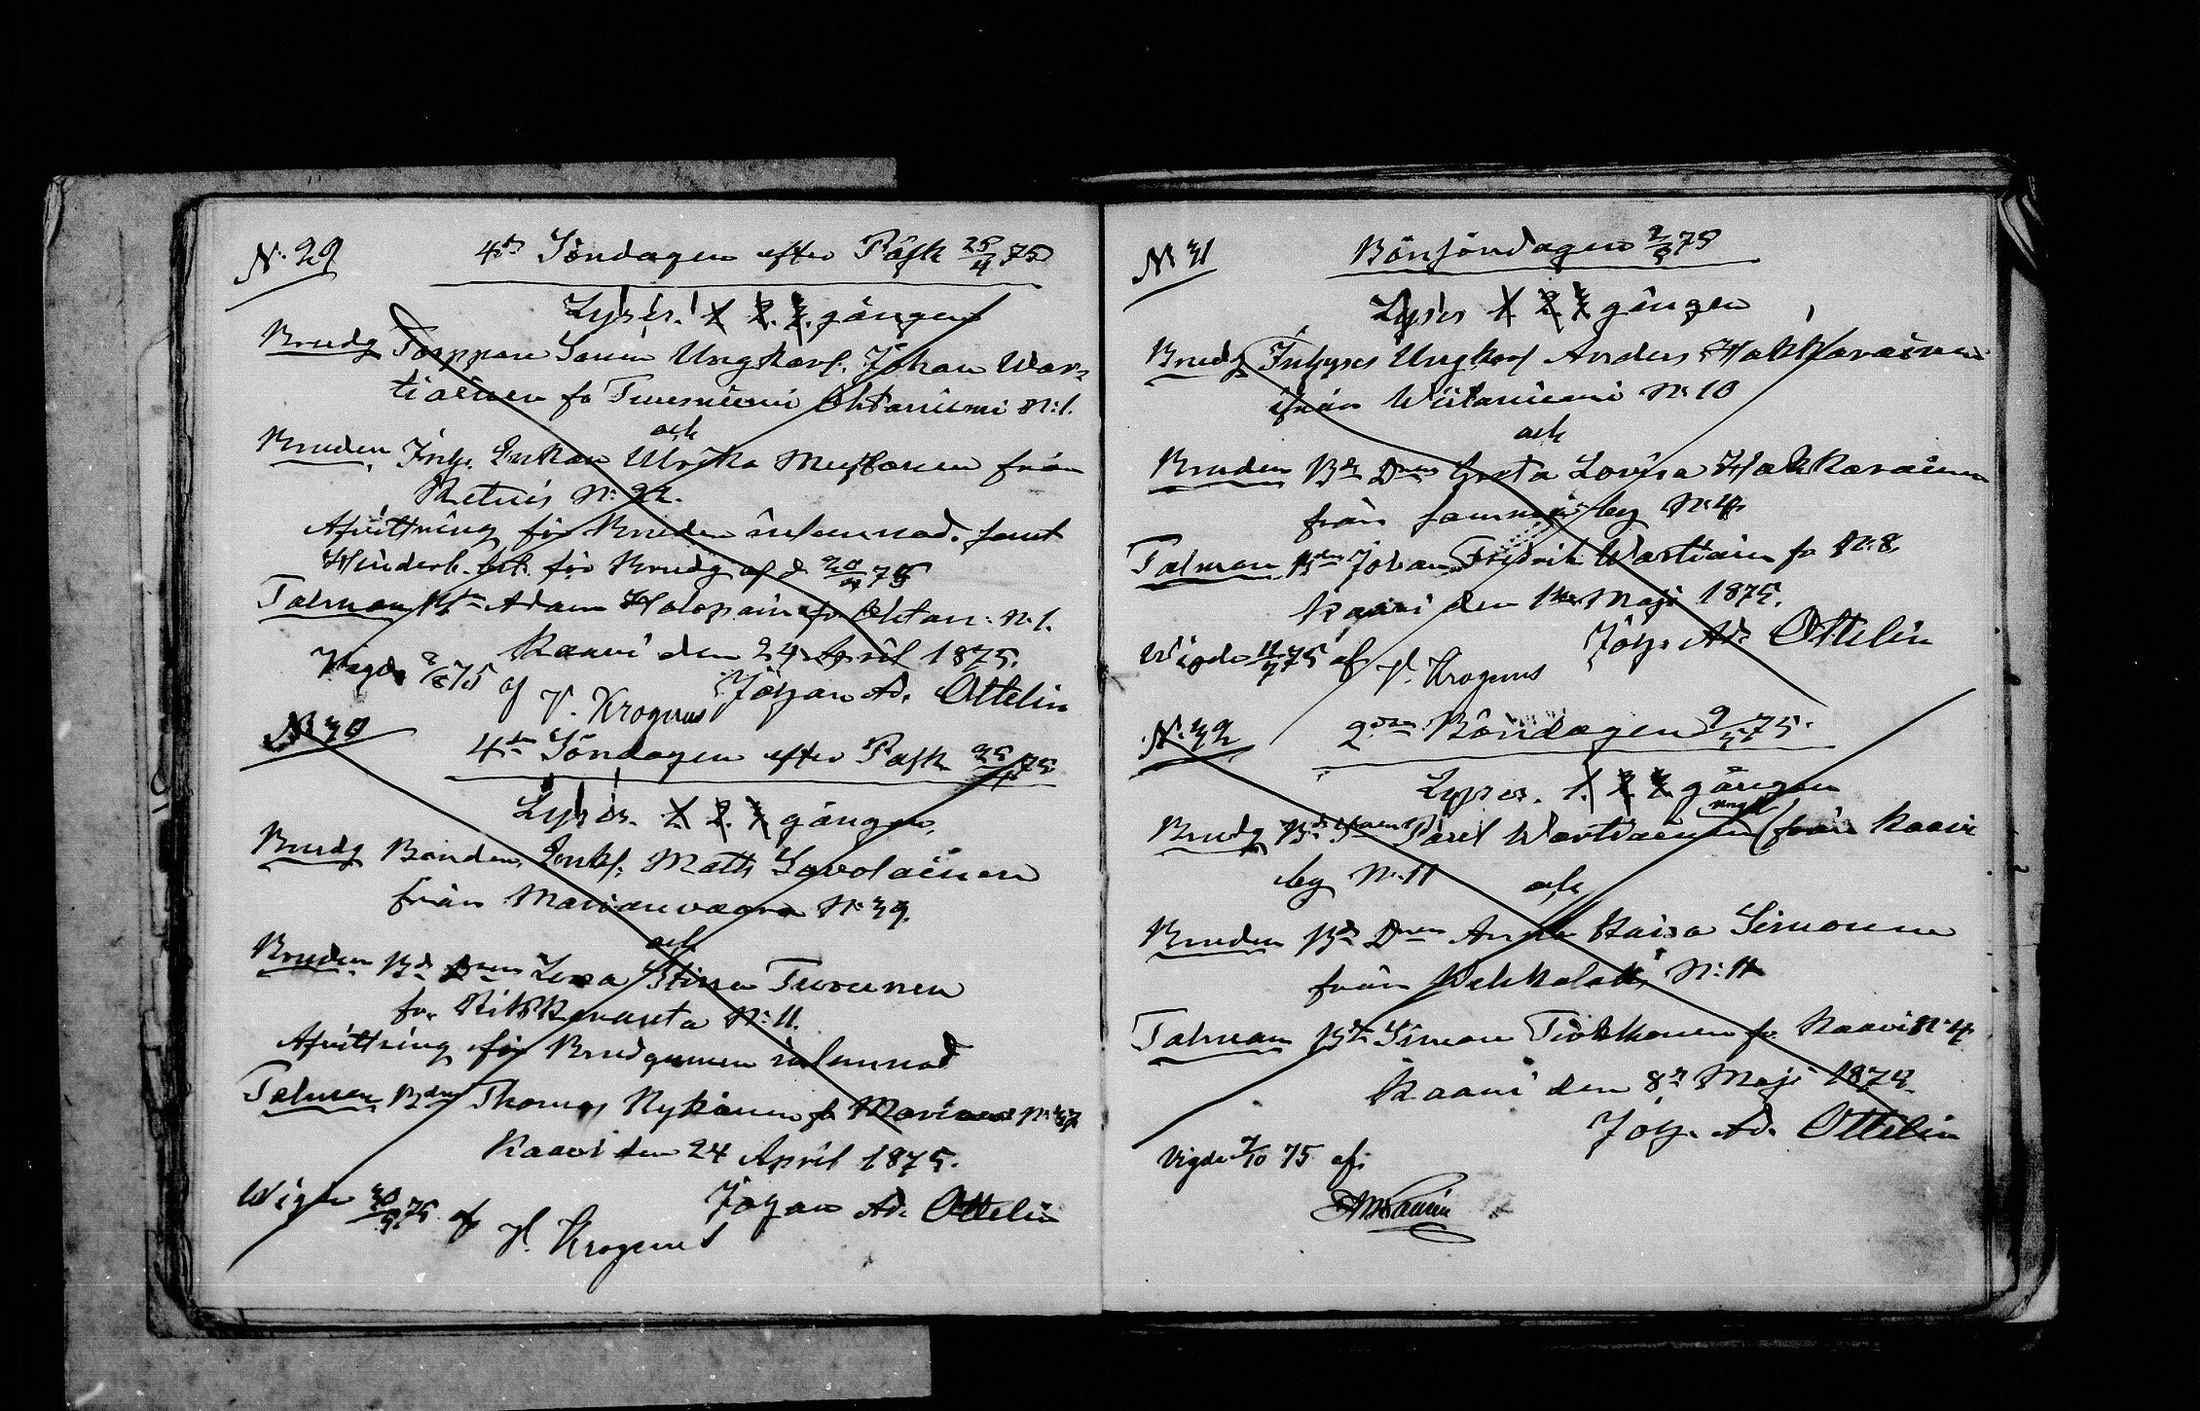 N: 29
4de Söndagen efter Påsk 25/4 75
Lyses. 1. 2. 3. gången
Brudg Torppare Sonen Ungkarl. Johan War-
tiainen fr Tuusniemi Ohtaniemi N:1.
och
Bruden Inh. Enkan Ulrika Mustonen från
Retuis N: 22.
Afvittring för Bruden inlemnad. samt
Hinderl. bet. för Brudg af d 20/4 75
Talman Bdn Adam Holopain fr Ohtan: N:1.
Kaavi den 24 April 1875.
Johan Ad. Ottelin
Vigde 75 af V. Krogerus
N: 30
4de Söndagen efter Påsk 25/4 75
Lyses. 1. 2. 3. gången.
Brudg Bonden, Enkl. Matts Savolainen
från Marianvaara N: 39.
och
Bruden Bd Dren Lena Stina Turunen
fr. Rikkaranta N: 11.
Afvittring för Brudgummen inlemnad
Talman Bdn Thomas Nykänen fr Marianv N: 37
Kaavi den 24 April 1875.
Johan Ad. Ottelin
Wigde 30/5 75 af V. Krogerus
N: 31
Bönsöndagen 2/5 75
Lyses 1. 2. 3 gången
Brudg Inhyses Ungkarl Anders Hakkarainen
ifrån Wiitaniemi N: 10
och
Bruden Bd Dren Greta Lovisa Hakkarainen
från samma by N: 4
Talman Bdn Johan Fredrik Wartiain fr N: 8.
Kaavi den 1 Maji 1875.
Joh. Ad. Ottelin
Wigde 11/7 75 af V. Krogerus
N: 32
2dra Böndagen 9/5 75.
Lyses. 1. 2. 3. gången
Brudg Bd Sonen Pavel Wartiainen ungk från Kaavi
by N: 11
och
Bruden Bd Dren Anna Kaisa Simonen
från N: 11
Talman Bdn Simon Tirkkonen fr. Kaavi N: 4
Kaavi den 8 Maji 1875.
Joh. Ad. Ottelin
Vigde /10 75 af: